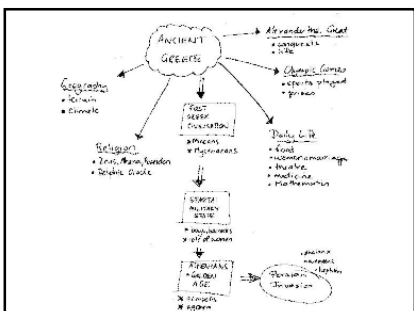 ANCIENT
GREECE
Alexander the Great
• conquests
• life
Olympic Games
• sports played
• prizes
Geography
• Terrain
• Climate
Religion
• Zeus, Athena, Poseidon
• Delphic Oracle
FIRST
GREEK
CIVILISATION
• Minoans
• Mycenaeans
Daily Life
• food
• women & marriage
• theatre
• medicine
• Mathematics
SPARTA
MILITARY
STATE
• role of women
ATHENIANS
GOLDEN
AGE
Persian
Invasion